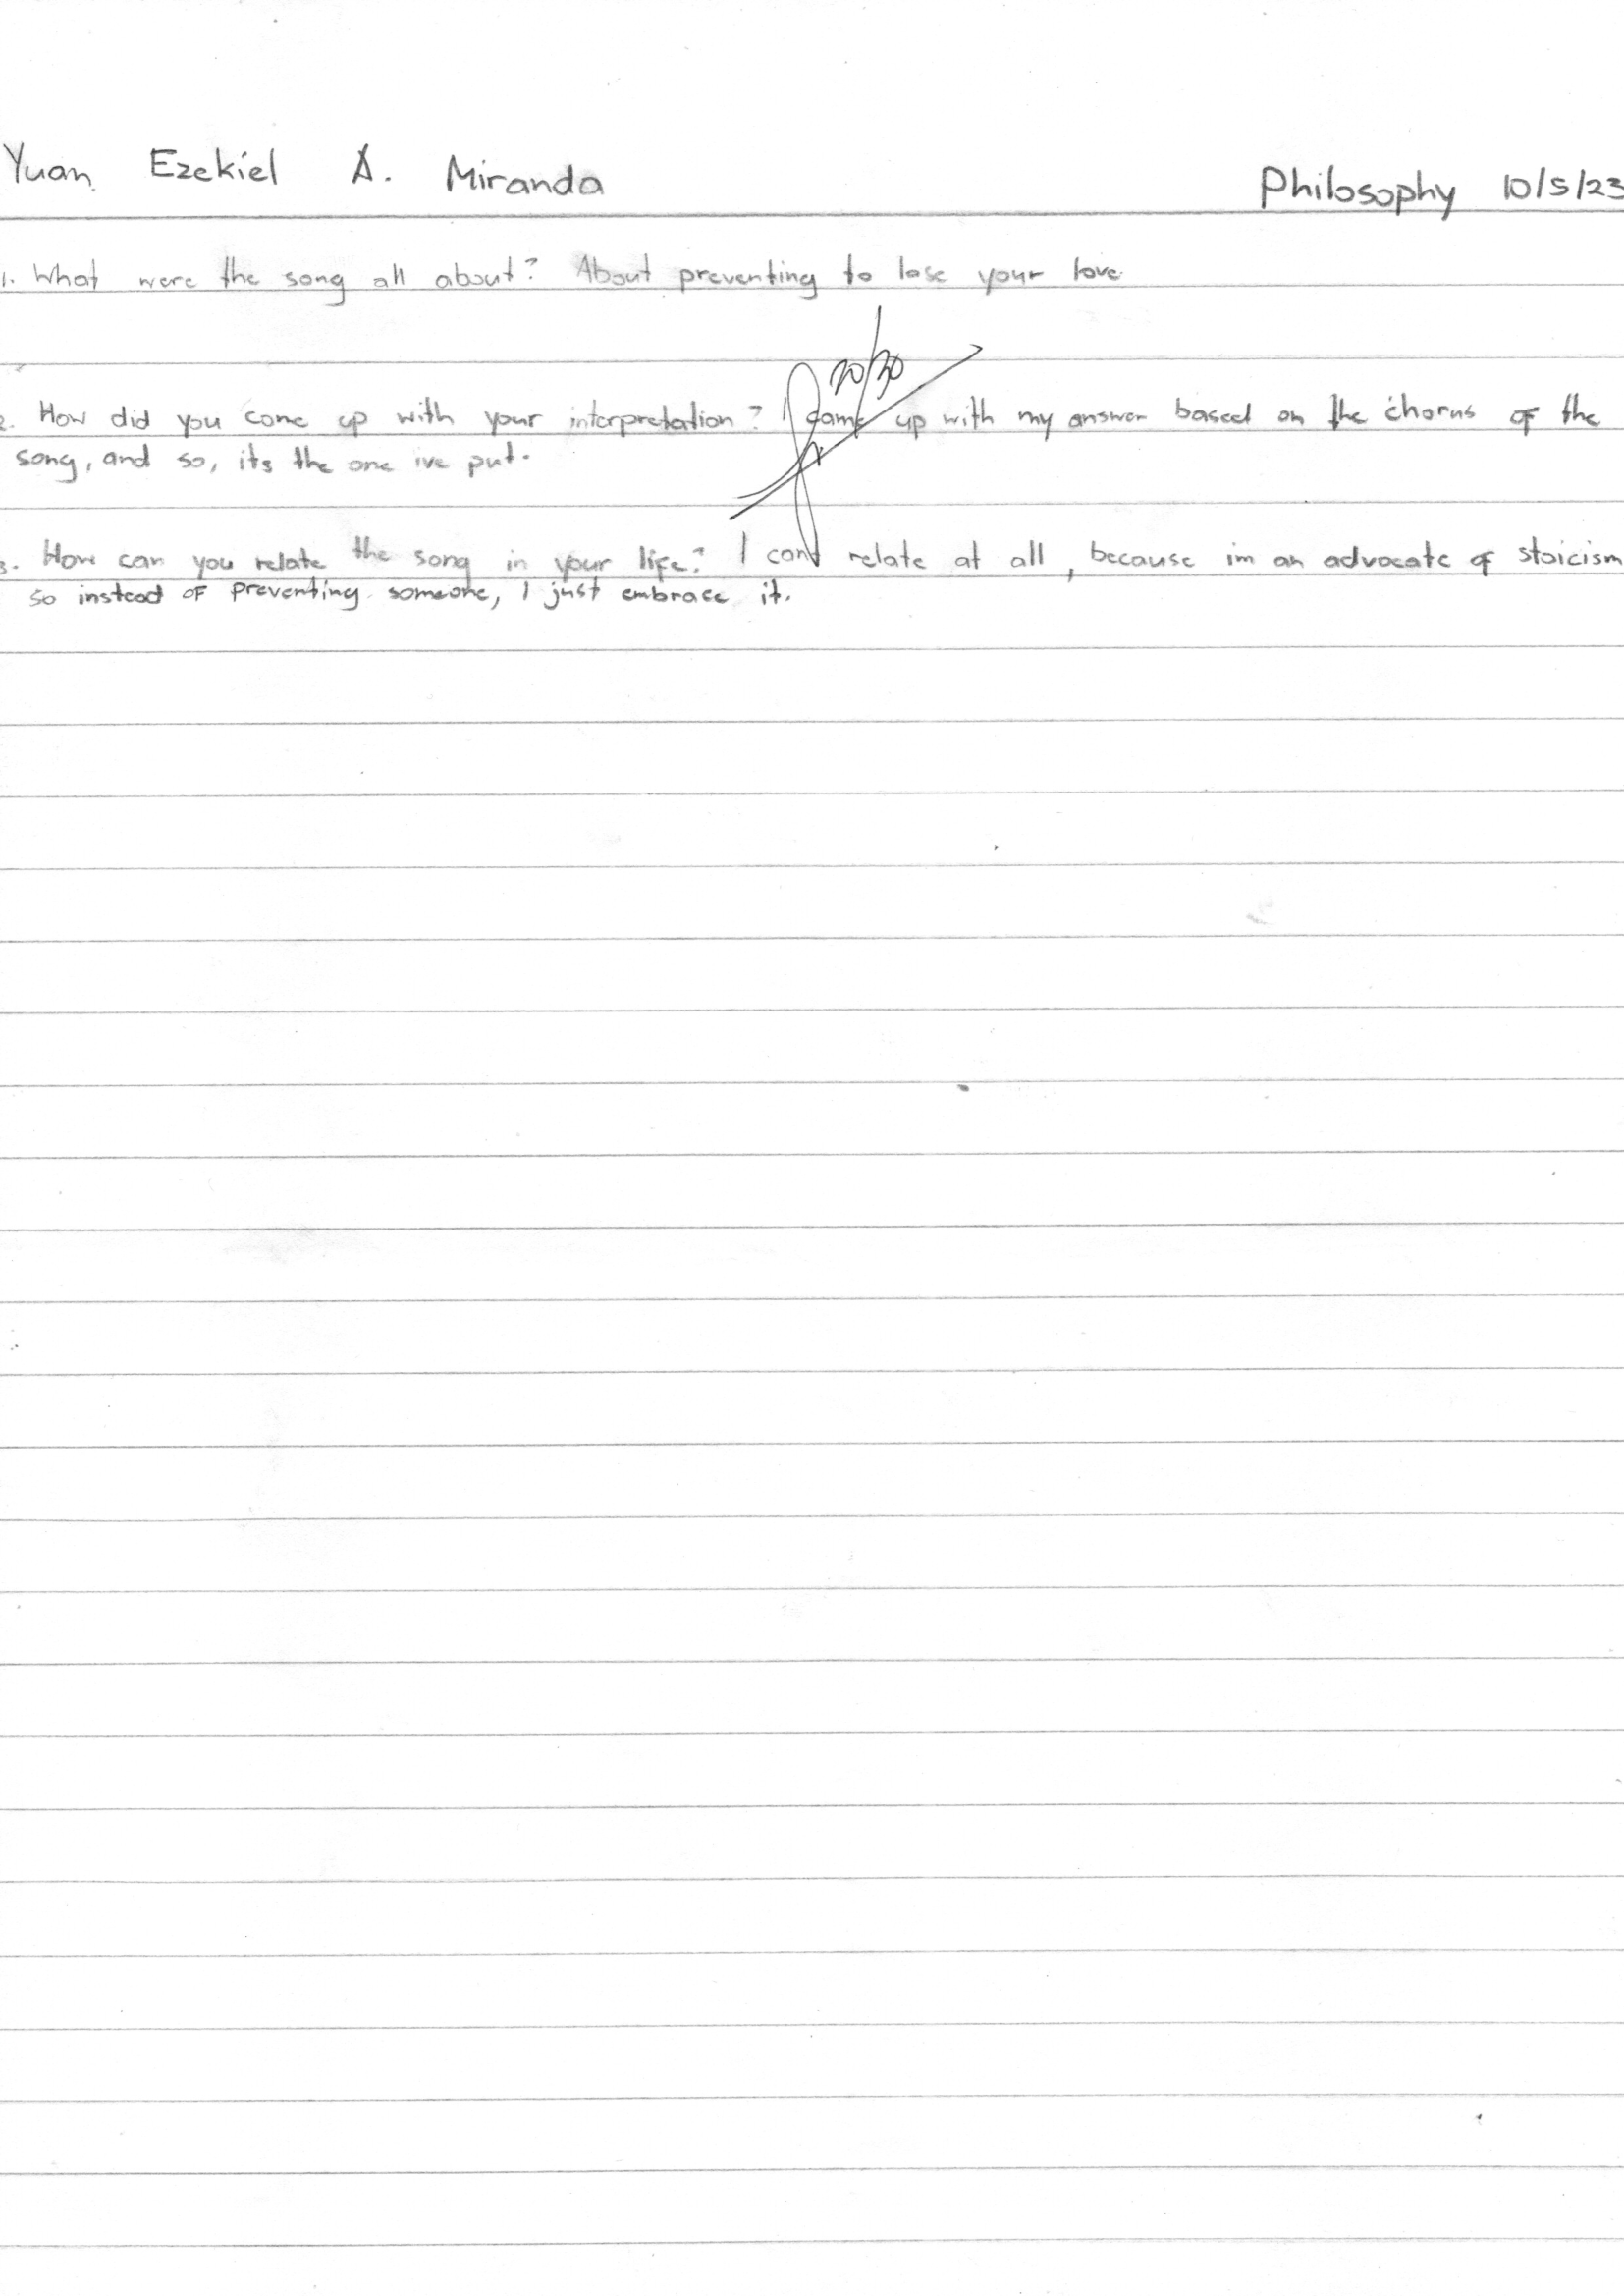 Yuan Ezekiel A. Miranda Philosophy 10/5/23
1. What were the song all about? About preventing to lose your love
2. How did you come up with your interpretation? I came up with my answer based on the chorus of the
song, and so, its the one ive put.
3. How can you relate the song in your life? I cant relate at all, because im an advocate of stoicism
so instead of preventing someone, I just embrace it.